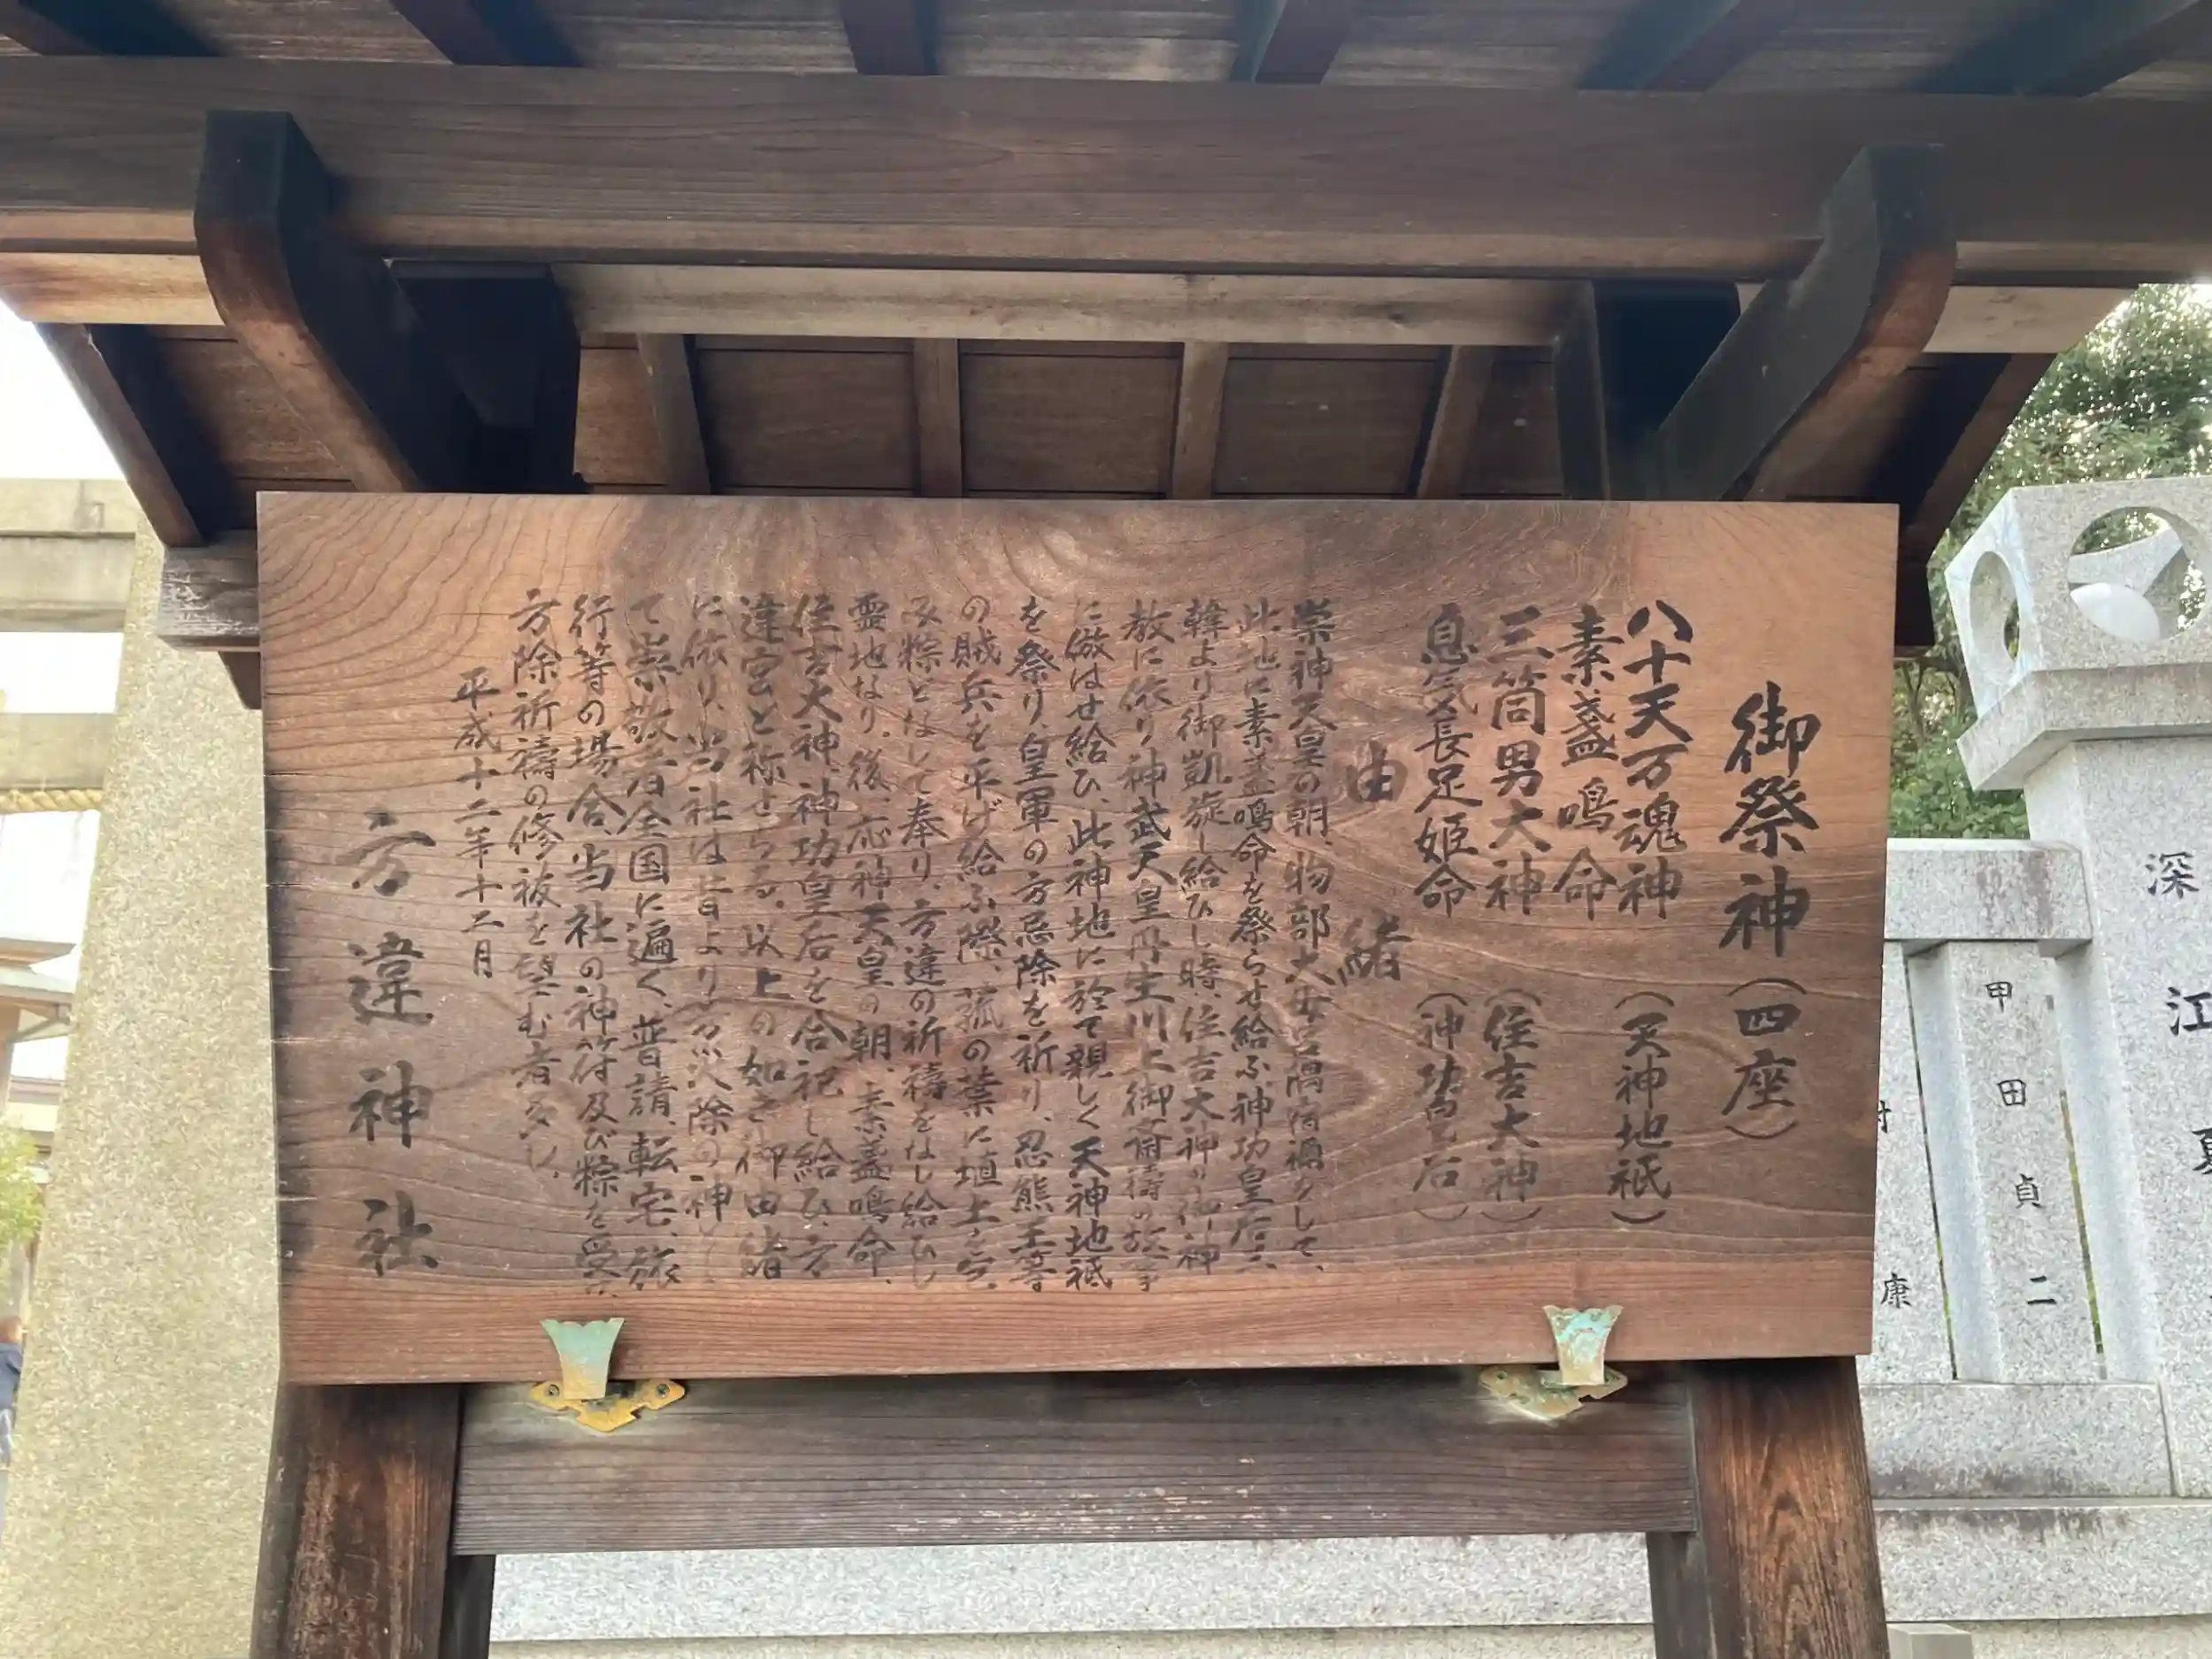 御祭神(四座)
八十天万魂神(天神地祇)
素盞嗚命
三筒男大神(住吉大神)
息気長足姫命(神功皇后)
由緒
崇神天皇の朝、物部大母呂隅宿禰をして、
此地に素盞嗚命を祭らせ給ふ、神功皇后三
韓より御凱旋し給ひし時、住吉大神の御神
教に依り、神武天皇丹生川上御斎祷の故事
に倣はせ給ひ、此神地に於て親しく天神地祇
を祭り、皇軍の方忌除を祈り、忍熊王等
の賊兵を平げ給ふ際、菰の葉に埴土を
粽となして奉り、方違の祈祷をなし給ひし
霊地なり。後、応神天皇の朝、素盞嗚命、
住吉大神、神功皇后を合祀し給ひ、方
違宮と称せらる。以上の如き御由緒
に依り、当社は昔より方災除の神
て崇敬者全国に遍く、普請、転宅、旅
行等の場合、当社の神符及び粽を受
方除祈祷の修祓を望む者多し。
平成十二年十二月
方違神社
深江
甲田貞二
康